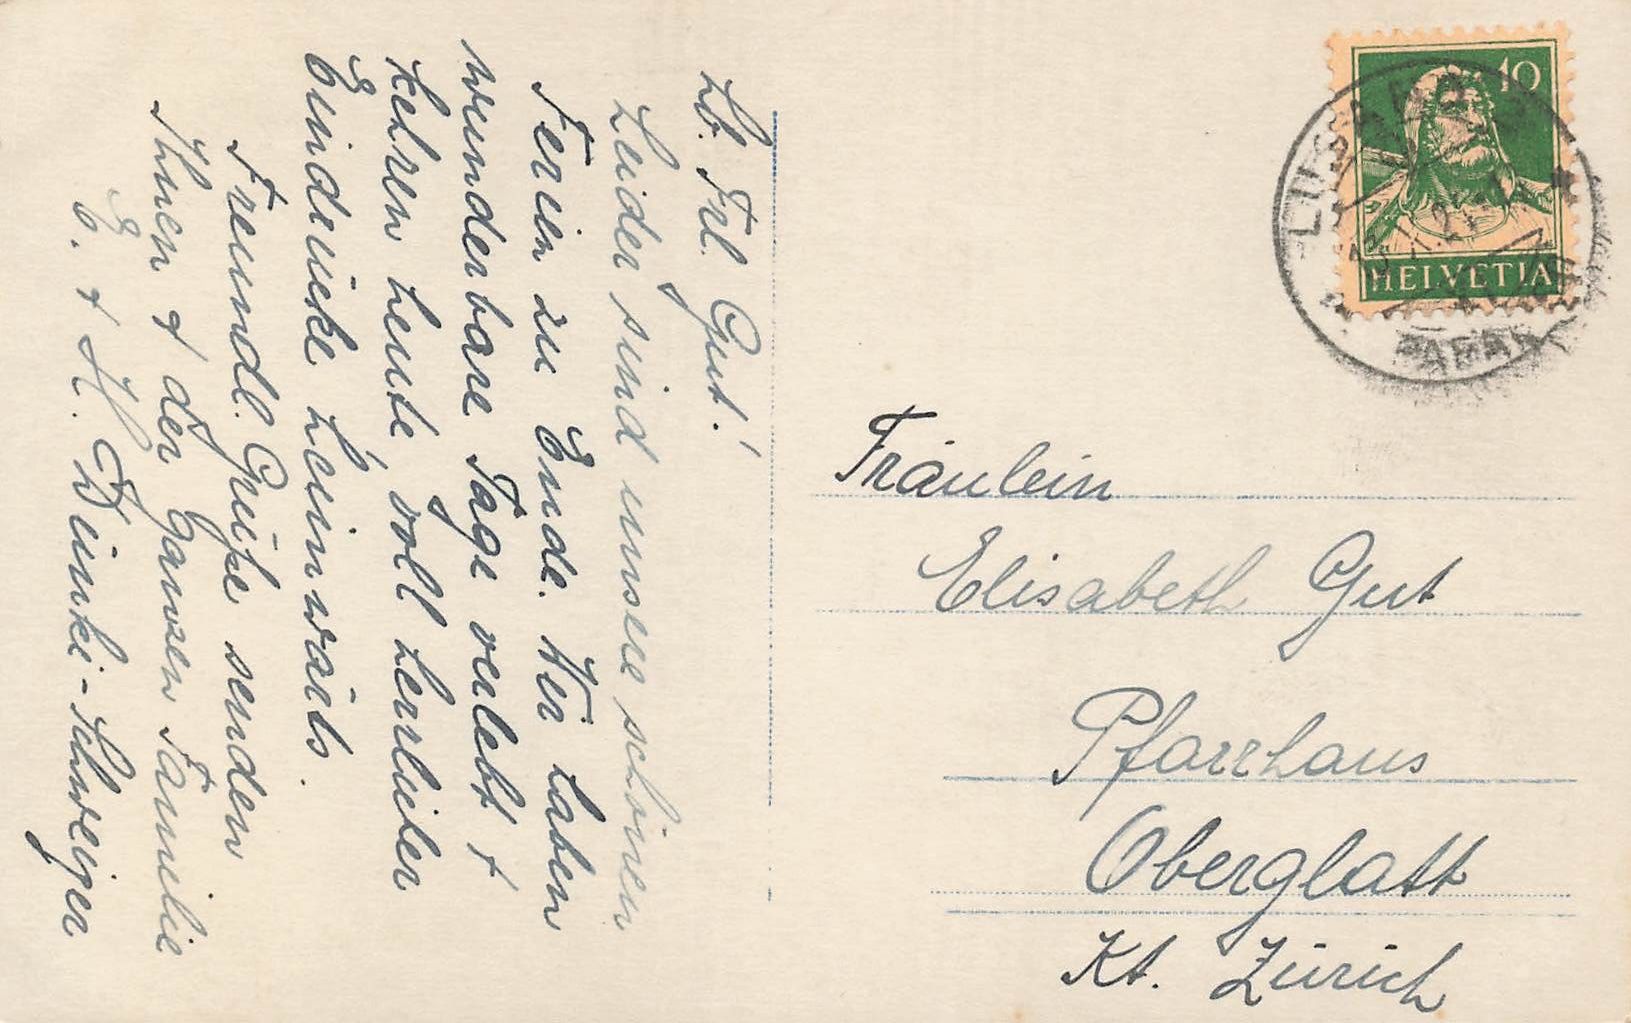 Lb. Frl. Gut!
Leider sind unsere schönen
Ferien zu Ende. Wir haben
wunderbare Tage verlebt &
kehren heute voll herrlicher
Eindrücke heimwärts.
Freundl. Grüße senden
Ihnen & der ganzen Familie
E. & H. Dünki-Schweizer
10
HELVETIA
LUGANO
Fräulein
Elisabeth Gut
Pfarrhaus
Oberglatt
Kt. Zürich